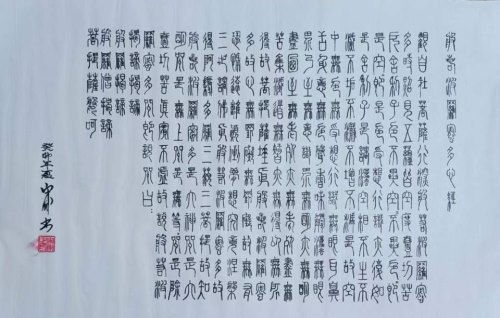 般若波羅蜜多心經
觀自在菩薩行深般若波羅蜜
多時照見五蘊皆空度一切苦
厄舍利子色不異空空不異色色即
是空空即是色受想行識亦復如
是舍利子是諸法空相不生不
滅不垢不淨不增不減是故空
中無色無受想行識無眼耳鼻
舌身意無色聲香味觸法無眼
界乃至無意識界無無明亦無無明
盡乃至無老死亦無老死盡無
苦集滅道無智亦無得以無所
得故菩提薩埵依般若波羅蜜
多故心無罣礙無罣礙故無有恐怖
遠離顛倒夢想究竟涅槃
三世諸佛依般若波羅蜜多故
得阿耨多羅三藐三菩提故知
般若波羅蜜多是大神咒是大
明咒是無上咒是無等等咒能除
一切苦真實不虛故說般若波
羅蜜多咒即說咒曰
揭諦揭諦
般羅揭諦
般羅僧揭諦
菩提薩婆訶
癸卯年